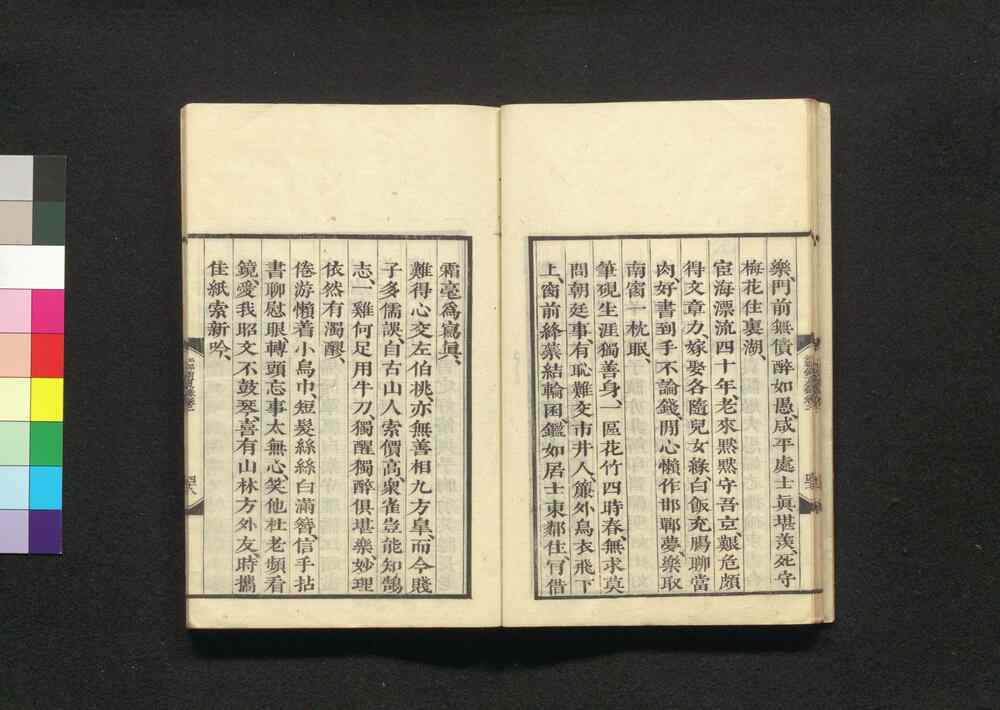 樂、門前無債醉如愚、咸平處士眞堪羨、死守
梅花住裏湖、
宦海漂流四十年、老來黙黙守吾玄、艱危頗
得文章力、嫁娶各隨兒女緣、白飯充腸聊當
肉、好書到手不論錢、閒心懶作邯鄲夢、樂取
南窗一枕眠、
筆硯生涯獨善身、一區花竹四時春、無求莫
問朝廷事、有恥難交市井人、簾外烏衣飛下
上、窗前終葉結輪囷、鑑如居士東鄰住、肯借
霜毫爲寫眞、
難得心交左伯桃、亦無善相九方皐、而今賤
子多儒誤、自古山人索價高、衆雀豈能知鵠
志、一雞何足用牛刀、獨醒獨醉俱堪樂、妙理
依然有濁醪、
倦游懶着小烏巾、短髮絲絲白滿簪、信手拈
書聊慰眼、轉頭忘事太無心、笑他杜老頻看
鏡、愛我昭文不鼓琴、喜有山林方外友、時攜
佳紙索新吟、